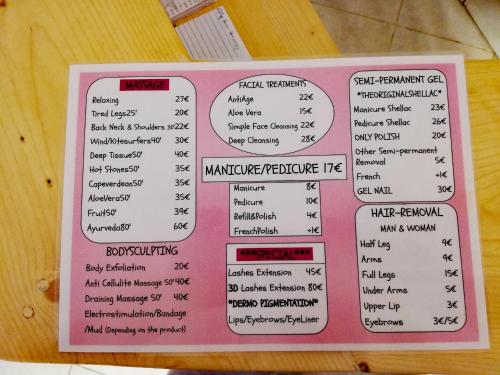 MASSAGE
Relaxing 27€
Tired Legs25' 20€
Back Neck & Shoulders 30'22€
Wind/Kitesurfers40' 30€
Deep Tissue50' 40€
Hot Stones50' 35€
Capeverdean50' 35€
AloeVera50' 35€
Fruit50' 39€
Ayurveda80' 60€
BODYSCULPTING
Body Exfoliation 20€
Anti Cellulite Massage 50'40€
Draining Massage 50' 40€
Electrostimulation/Bandage
/Mud (Depending on the product)
FACIAL TREATMENTS
AntiAge 22€
Aloe Vera 15€
Simple Face Cleansing 22€
Deep Cleansing 28€
MANICURE/PEDICURE 17€
Manicure 8€
Pedicure 10€
Refill&Polish 4€
FrenchPolish +1€
***SPECIAL***
Lashes Extension 45€
3D Lashes Extension 80€
*DERMO PIGMENTATION*
Lips/Eyebrows/EyeLiner
SEMI-PERMANENT GEL
*THEORIGINALSHELLAC*
Manicure Shellac 23€
Pedicure Shellac 26€
ONLY POLISH 20€
Other Semi-permanent
Removal 5€
French +1€
GEL NAIL 30€
HAIR-REMOVAL
MAN & WOMAN
Half Leg 9€
Arms 9€
Full Legs 15€
Under Arms 5€
Upper Lip 3€
Eyebrows 3€/5€